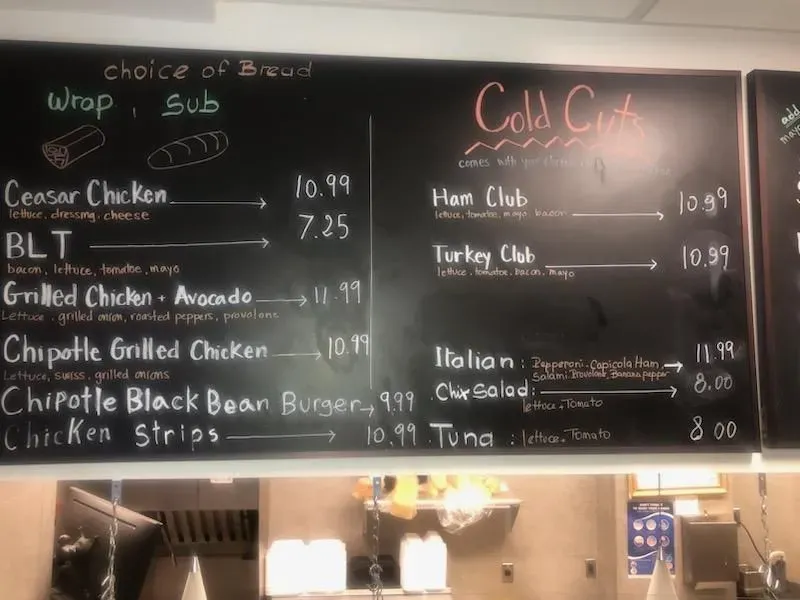 choice of Bread
Wrap, Sub
Ceasar Chicken 10.99
lettuce, dressing, cheese
BLT 7.25
bacon, lettuce, tomatoe, mayo
Grilled Chicken + Avocado 11.99
Lettuce, grilled onion, roasted peppers, provolone
Chipotle Grilled Chicken 10.99
Lettuce, swiss, grilled onions
Chipotle Black Bean Burger 9.99
Chicken Strips 10.99
Cold Cuts
comes with your choice
Ham Club 10.99
lettuce, tomatoe, mayo, bacon
Turkey Club 10.99
lettuce, tomatoe, bacon, mayo
Italian: Pepperoni, Capicola Ham, 11.99
Salami, Provolone, Banana pepper
Chix Salad: 8.00
lettuce + Tomato
Tuna : lettuce + Tomato 8 00
add
mayo